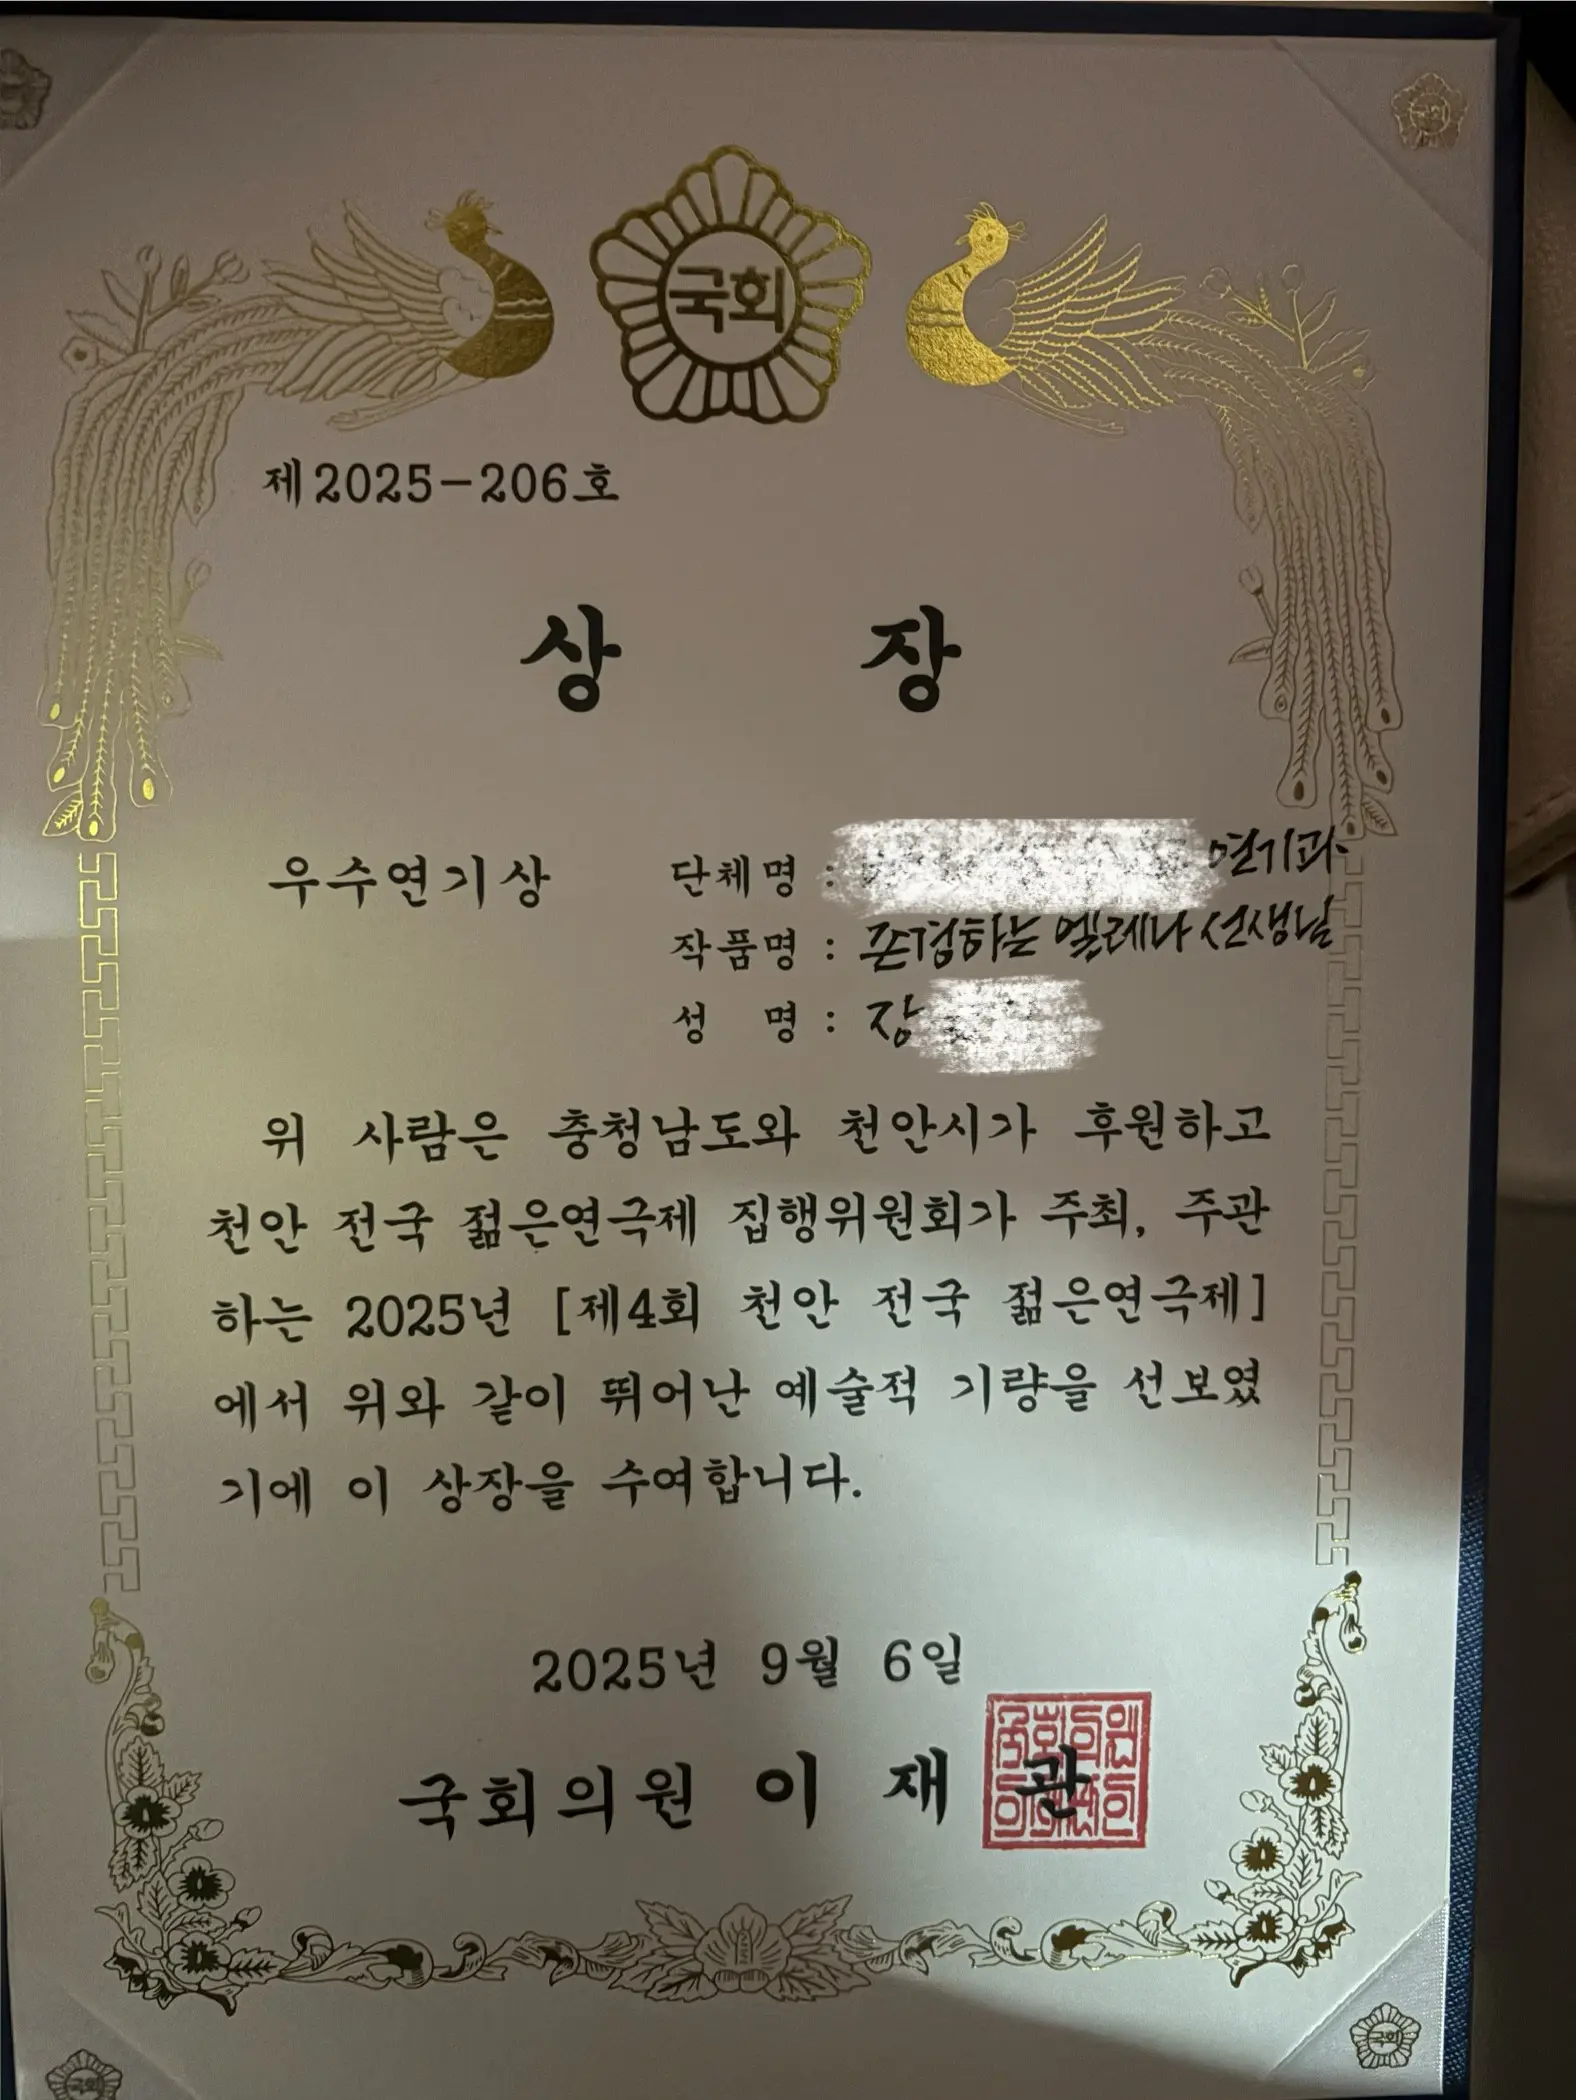 국회
제2025-206호
상 장
우수연기상 단체명 : 연기과
작품명 : 존경하는 엘레나 선생님
성 명 : 장
위 사람은 충청남도와 천안시가 후원하고
천안 전국 젊은연극제 집행위원회가 주최, 주관
하는 2025년 [제4회 천안 전국 젊은연극제]
에서 위와 같이 뛰어난 예술적 기량을 선보였
기에 이 상장을 수여합니다.
2025년 9월 6일
국회의원 이 재 관
국회
국회
국회